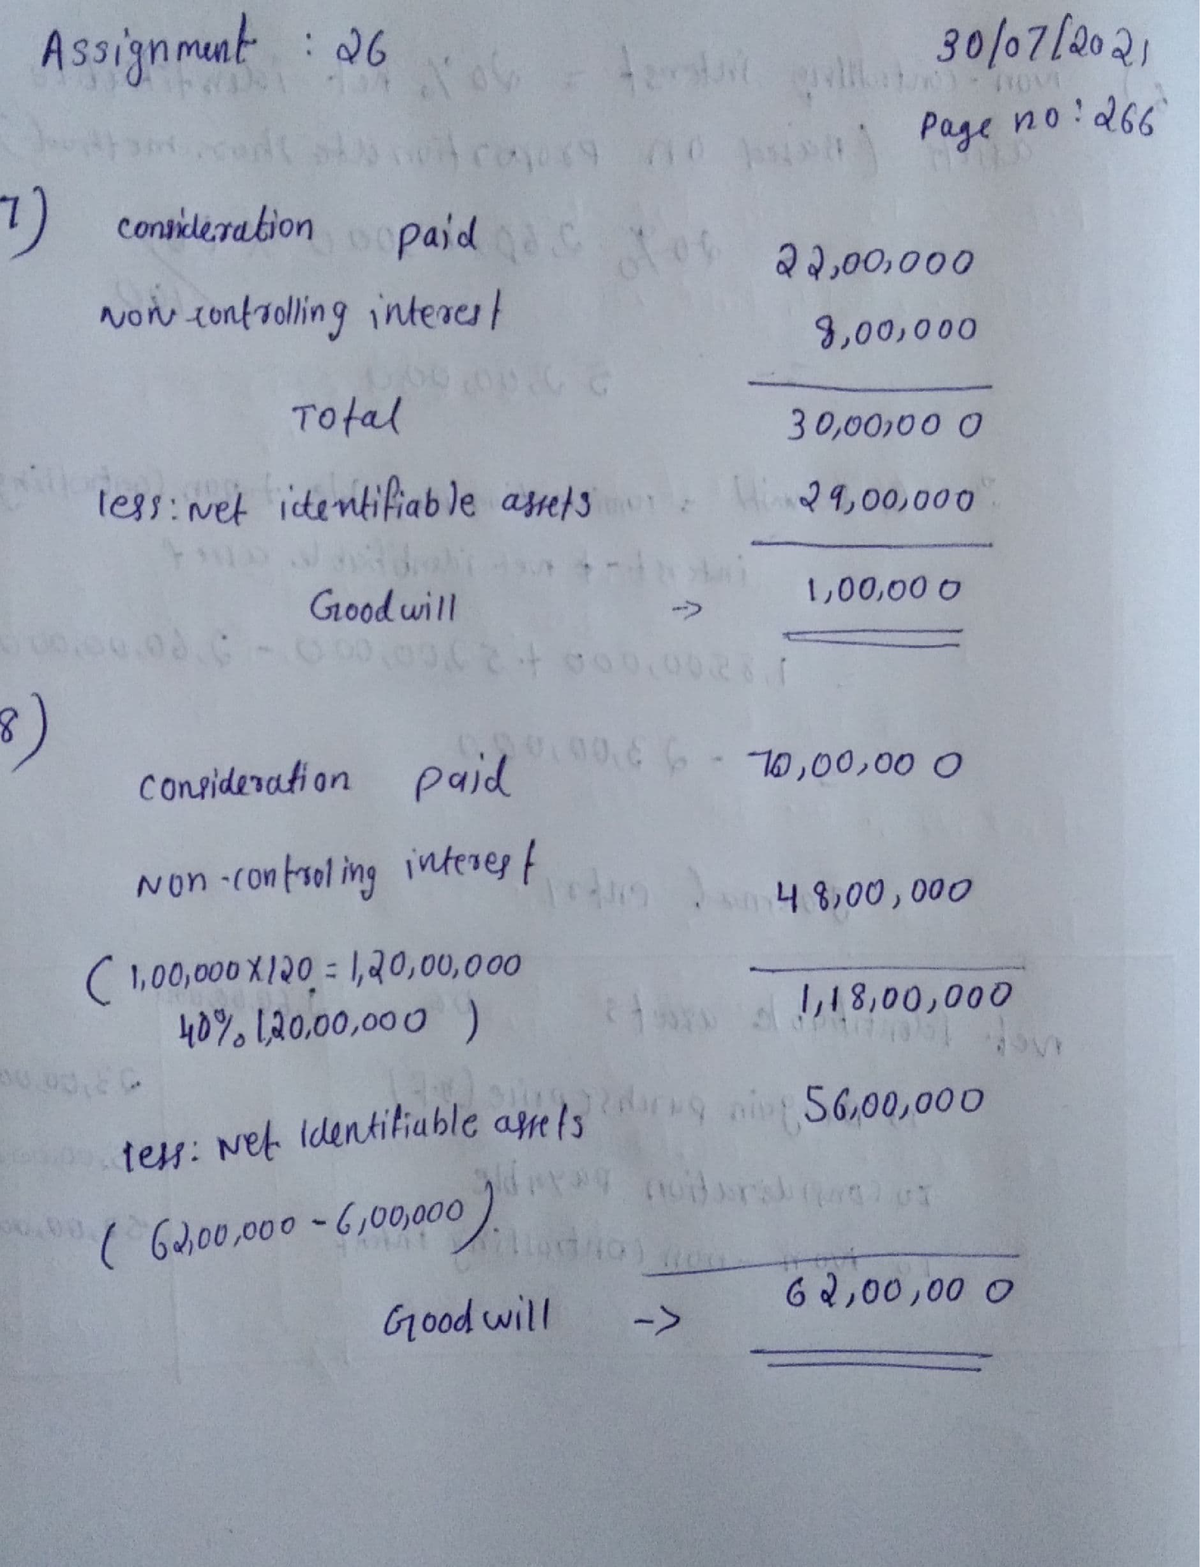 Assignment : 26
30/07/2021
Page no: 266
7)
consideration paid 22,00,000
Non controlling interest 8,00,000
Total 30,00,000
less: Net identifiable assets 29,00,000
Goodwill -> 1,00,000
8)
consideration paid 70,00,000
Non-controling interest 48,00,000
( 1,00,000 X 120 = 1,20,00,000
1,18,00,000
40% 1,20,00,000 )
less: Net Identifiable assets 56,00,000
( 62,00,000 - 6,00,000 ).
Goodwill -> 62,00,000